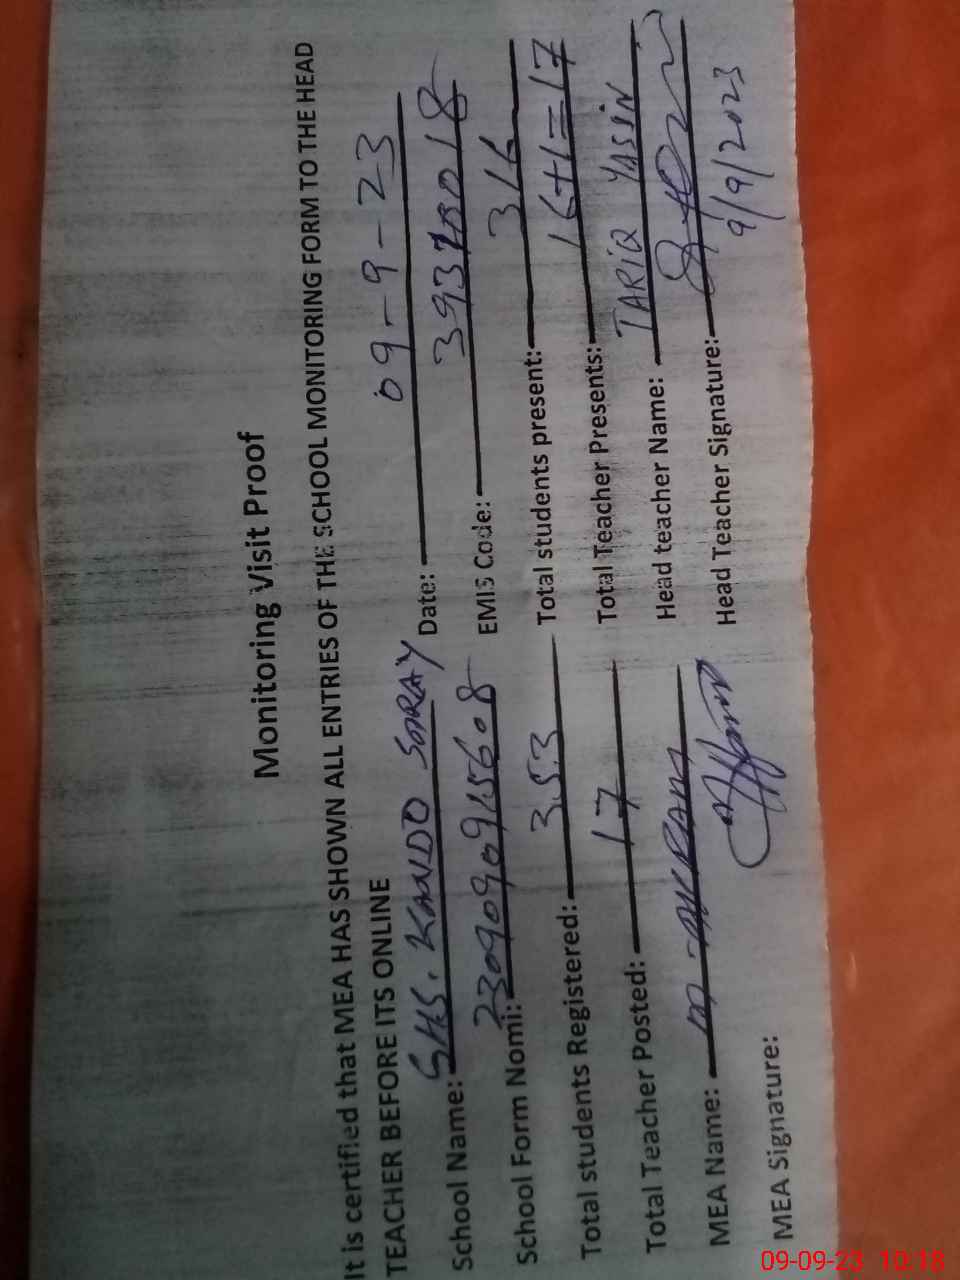 Monitoring Visit Proof
It is certified that MEA HAS SHOWN ALL ENTRIES OF THE SCHOOL MONITORING FORM TO THE HEAD
TEACHER BEFORE ITS ONLINE
School Name: GHS. KANDO SORAY Date: 09-9-23
School Form Nomi: 2309090915608 EMIS Code:
Total students Registered: 353 Total students present: 316
Total Teacher Posted: 17 Total Teacher Presents: 16+1=17
MEA Name: Head teacher Name: TARIQ YASSIN
MEA Signature: Head Teacher Signature:
9/9/2023
09-09-23 10:18